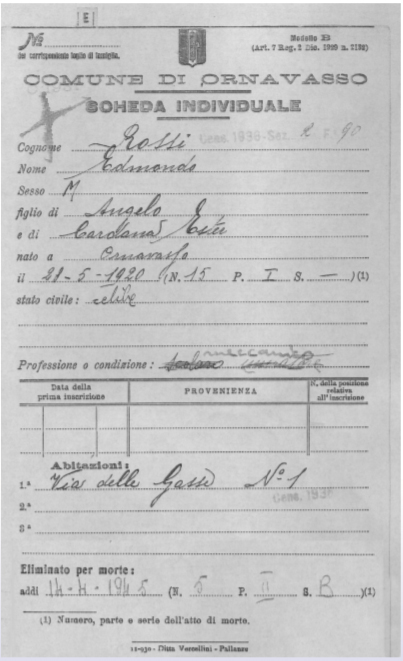 E
Nº
del corrispondente foglio di famiglia.
Modello B
(Art. 7 Reg. 2 Dic. 1929 n. 2132)
COMUNE DI ORNAVASSO
SCHEDA INDIVIDUALE
Cens. 1936-Sez. 2 F. 90
Cognome Rossi
Nome Edmondo
Sesso M
figlio di Angelo
e di Cardana Ester
nato a Ornavasso
il 28-5-1920 (N. 15 P. I S. — )(1)
stato civile: celibe
Professione o condizione: scolaro meccanico
Data della prima inscrizione
PROVENIENZA
N. della posizione relativa all'inscrizione
Abitazioni:
1.ª Via delle Gasse Nº 1
Cens. 1936
2.ª
3.ª
Eliminato per morte:
addì 14-4-1945 (N. 5 P. II S. B )(1)
(1) Numero, parte e serie dell'atto di morte.
11-930 - Ditta Vercellini - Pallanza